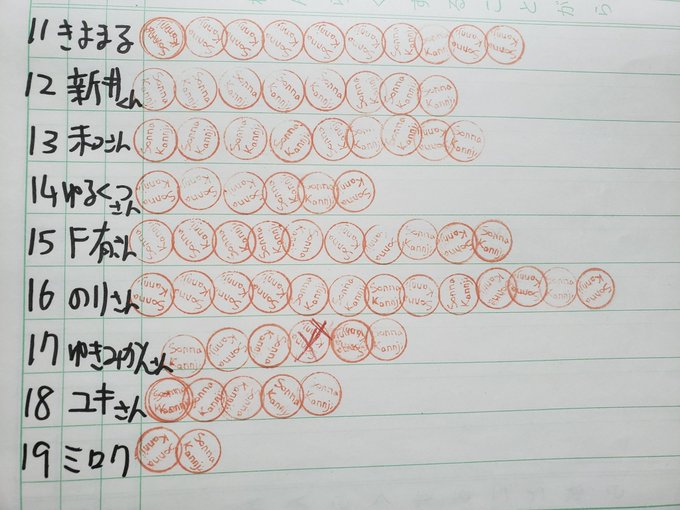 11 きままる
12 新井くん
13 さん
14 ゆるくつさん
15 F有さん
16 のりさん
17 さん
18 ユキさん
19 ミロク
Sonna Kannji